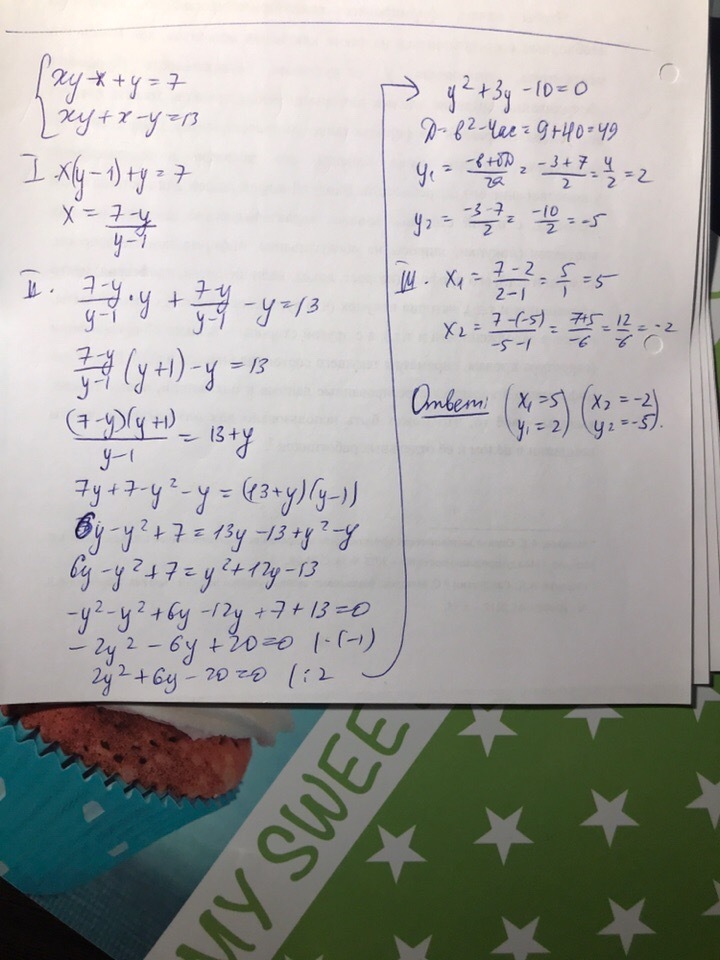 {xy - x + y = 7
xy + x - y = 13
I x(y-1)+y = 7
x = \frac{7-y}{y-1}
II. \frac{7-y}{y-1} · y + \frac{7-y}{y-1} - y = 13
\frac{7-y}{y-1} (y+1) - y = 13
\frac{(7-y)(y+1)}{y-1} = 13+y
7y+7-y² - y = (13+y)(y-1)
6y - y² + 7 = 13y - 13 + y² - y
6y - y² + 7 = y² + 12y - 13
-y² - y² + 6y - 12y + 7 + 13 = 0
- 2y² - 6y + 20 = 0 |·(-1)
2y² + 6y - 20 = 0 |:2
y² + 3y - 10 = 0
D = b² - 4ac = 9+40 = 49
y₁ = \frac{-b+√D}{2a} = \frac{-3+7}{2} = \frac{4}{2} = 2
y₂ = \frac{-3-7}{2} = \frac{-10}{2} = -5
III. x₁ = \frac{7-2}{2-1} = \frac{5}{1} = 5
x₂ = \frac{7-(-5)}{-5-1} = \frac{7+5}{-6} = \frac{12}{-6} = -2
Ответ: (x₁ = 5 (x₂ = -2
y₁ = 2) y₂ = -5).
MY SWEE